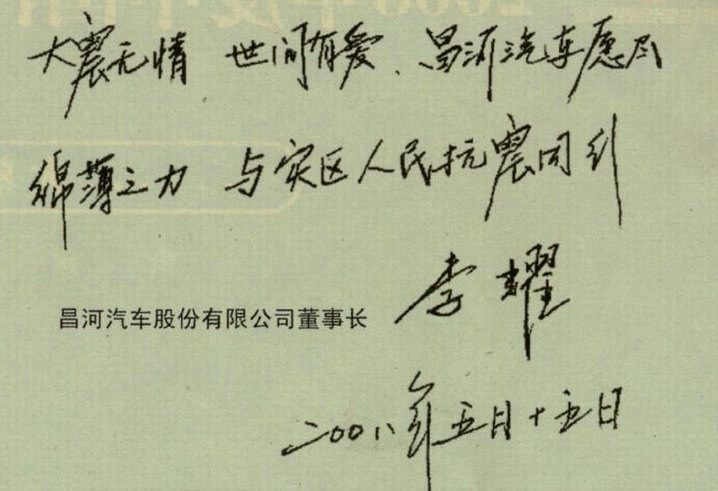 大震无情 世间有爱、昌河汽车愿尽
绵薄之力 与灾区人民抗震同行
李耀
昌河汽车股份有限公司董事长
二00八年五月十五日